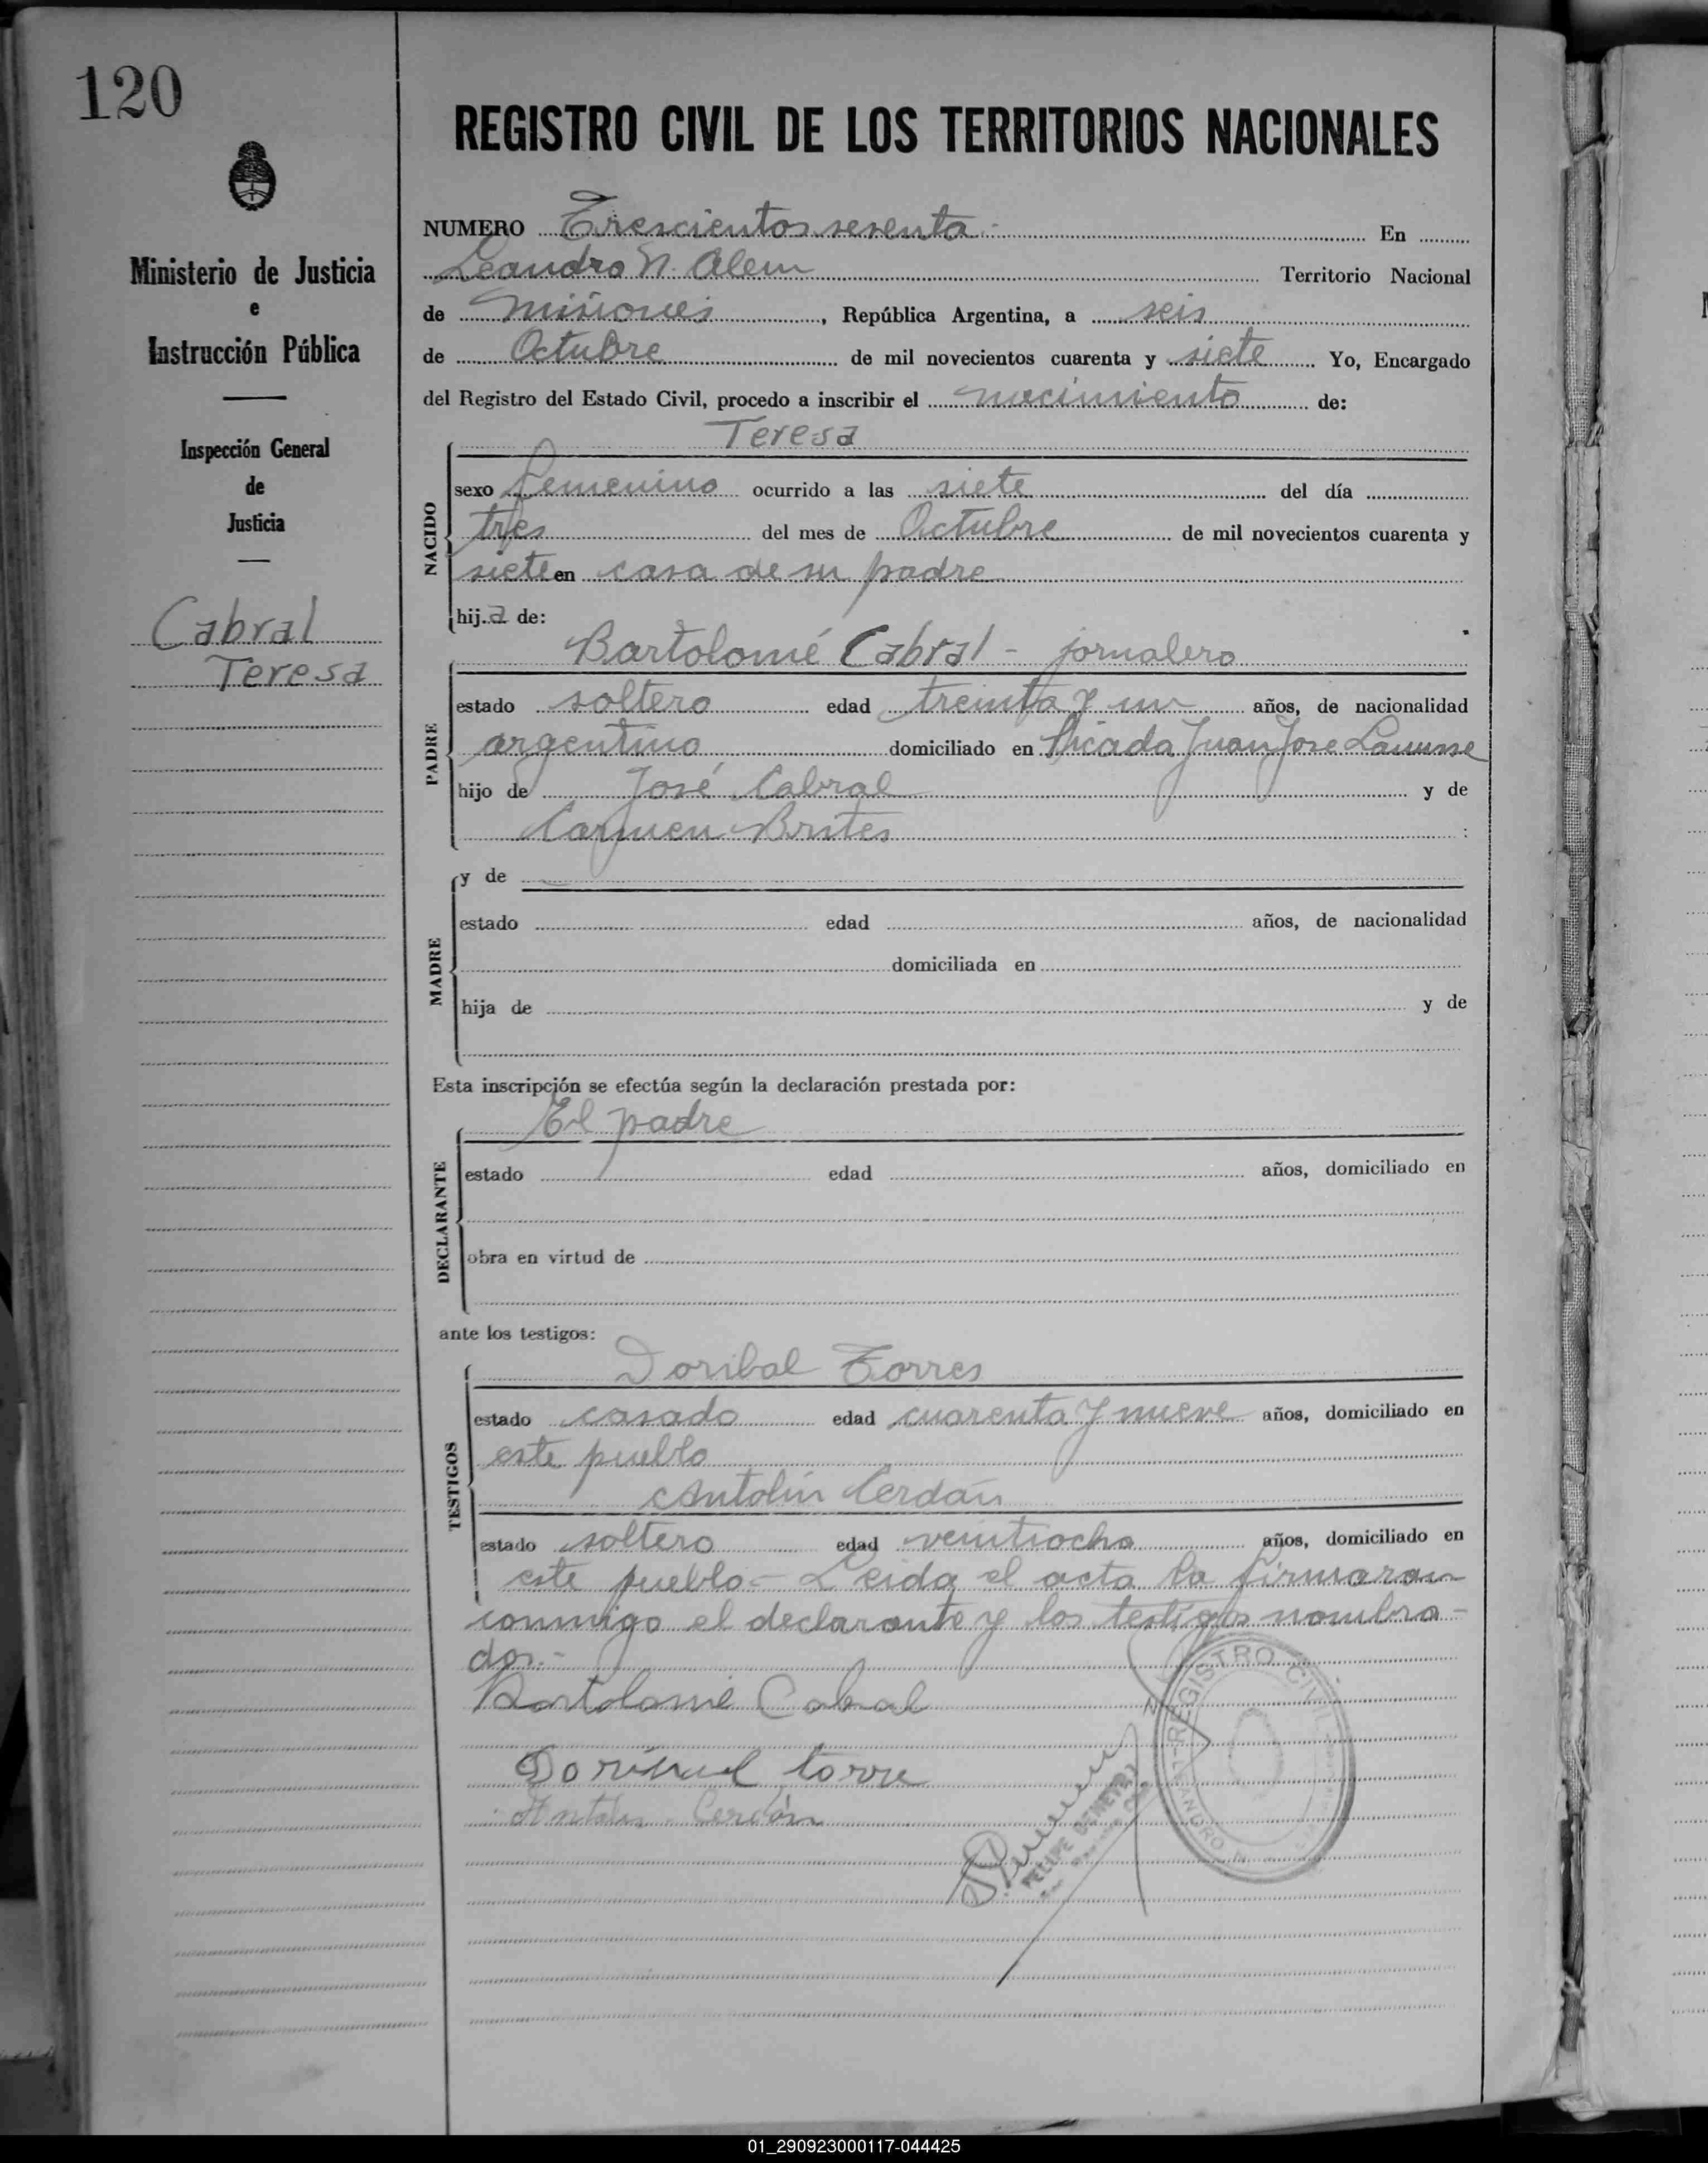 120
REGISTRO CIVIL DE LOS TERRITORIOS NACIONALES
Ministerio de Justicia
e
Instrucción Pública
Inspección General
de
Justicia
Cabral
Teresa
NUMERO Trescientos sesenta.- En
Leandro N. Alem Territorio Nacional
de Misiones, República Argentina, a seis
de Octubre de mil novecientos cuarenta y siete Yo, Encargado
del Registro del Estado Civil, procedo a inscribir el nacimiento de:
Teresa
NACIDO
sexo femenino ocurrido a las siete del día
tres del mes de Octubre de mil novecientos cuarenta y
siete en casa de su padre
hija de:
Bartolomé Cabral - jornalero
PADRE
estado soltero edad treinta y un años, de nacionalidad
argentino domiciliado en Picada Juan Jose Lanusse
hijo de José Cabral y de
Carmen Brites :
MADRE
y de
estado edad años, de nacionalidad
domiciliada en
hija de y de
Esta inscripción se efectúa según la declaración prestada por:
El padre
DECLARANTE
estado edad años, domiciliado en
obra en virtud de
ante los testigos:
Doribal Torres
TESTIGOS
estado casado edad cuarenta y nueve años, domiciliado en
este pueblo
Antolín Cerdán
estado soltero edad veintiocho años, domiciliado en
este pueblo.- Leida el acta la firmaron
conmigo el declarante y los testigos nombra-
dos.-
Bartolomé Cabral
Dorival torre
Antolin Cerdán
FELIPE
REGISTRO CIVIL
01_290923000117-044425